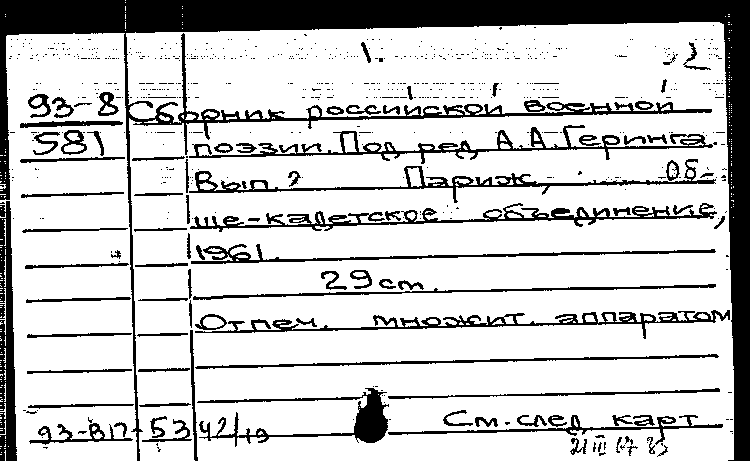 1.
93-8 Сборник российской военной
581 поэзии. Под ред. А.А. Геринга.
Вып. 2 Париж, Об-
ще-кадетское объединение,
1961.
29 ст.
Отпеч. множит. аппаратом
См. след. карт
93-В17-53 42/19